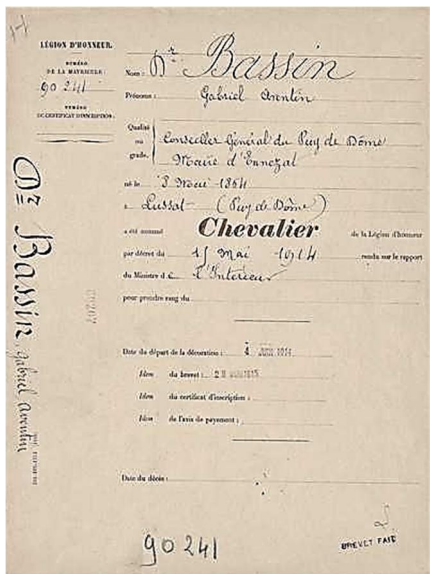 LÉGION D'HONNEUR.
NUMÉRO
DE LA MATRICULE :
90 241
NUMÉRO
DU CERTIFICAT D'INSCRIPTION :
Dr Bassin, Gabriel Aventin
Nom : Dr Bassin
Prénoms : Gabriel Aventin
Qualité
ou
grade.
Conseiller Général du Puy de Dôme
Maire d'Ennezat
né le 3 1864
à Lussat (Puy de Dôme)
a été nommé Chevalier de la Légion d'honneur
par décret du 15 Mai 1914 rendu sur le rapport
du Ministre de l'Intérieur
pour prendre rang du
Date du départ de la décoration : 4 JUIN 1914
Idem du brevet : 1915
Idem du certificat d'inscription :
Idem de l'avis de payement :
Date du décès :
90241
BREVET FAIT